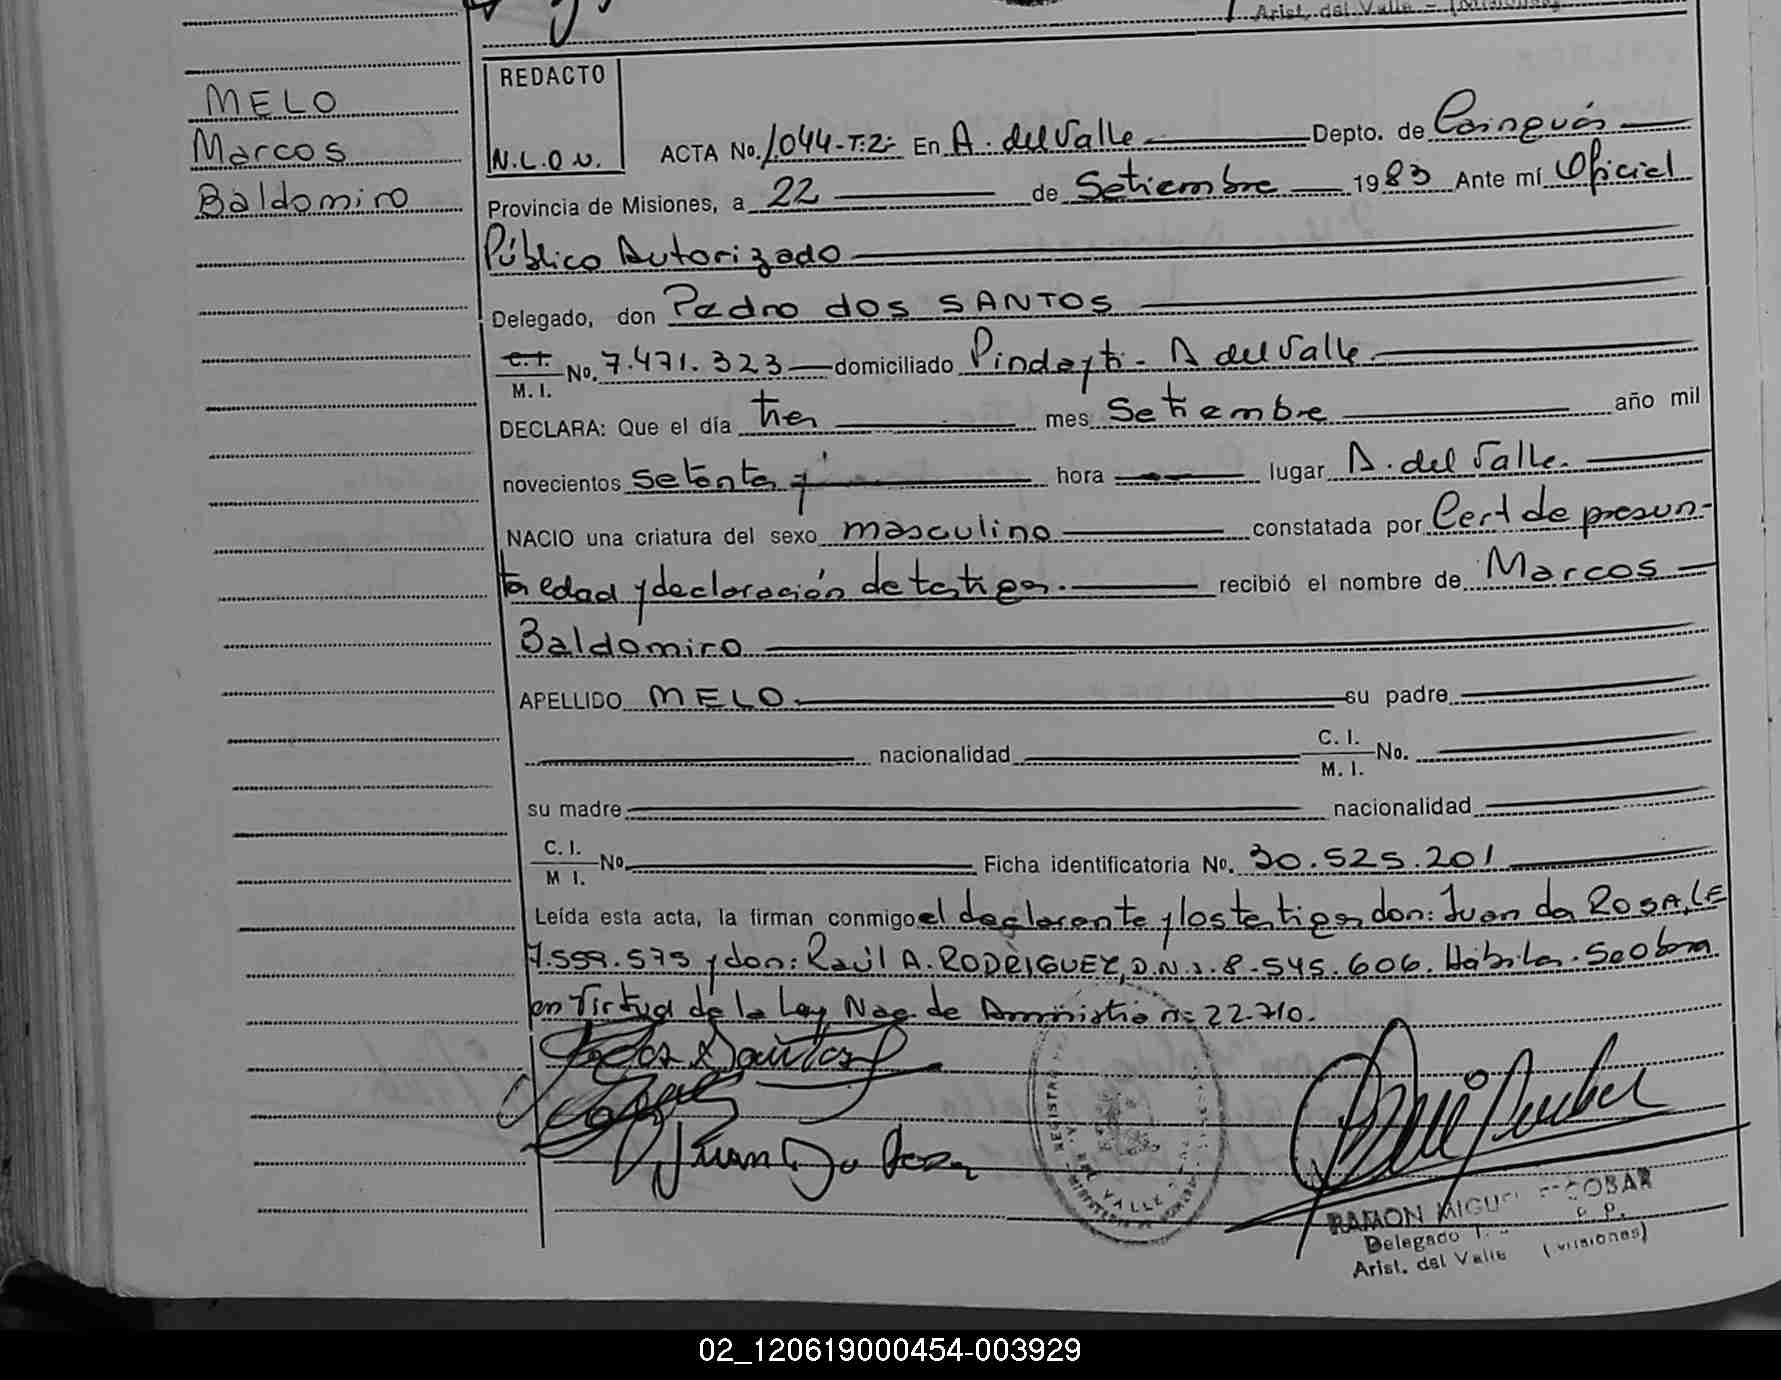 Arist. del Valle - (Misiones)
REDACTO
N.L.O.N.
MELO
Marcos
Baldomiro
ACTA No. 1.044-T:2- En A. del Valle Depto. de Cainguás
Provincia de Misiones, a 22 de Setiembre 1983 Ante mí Oficial
Público Autorizado
Delegado, don Pedro dos SANTOS
C.I. M.I. No. 7.471.323 domiciliado Pindayti - A del Valle
DECLARA: Que el día tres mes Setiembre año mil
novecientos setenta y hora lugar A. del Valle.
NACIO una criatura del sexo masculino constatada por Cert de presun-
ta edad y declaración de testigos. recibió el nombre de Marcos
Baldomiro
APELLIDO MELO su padre
nacionalidad C. I. M. I. No.
su madre nacionalidad
C. I. M I. No Ficha identificatoria No. 30.525.201
Leída esta acta, la firman conmigo el declarante y los testigos don: Juan da ROSA, LE
7.559.575 y don: Raúl A. RODRIGUEZ, D.N.I. 8.545.606. Hábiles. Se obra
en virtud de la Ley Nac. de Amnistía n: 22.710.
Juan Da Rosa
RAMON MIGUEL ESCOBAR
Delegado
Arist. del Valle (Misiones)
02_120619000454-003929